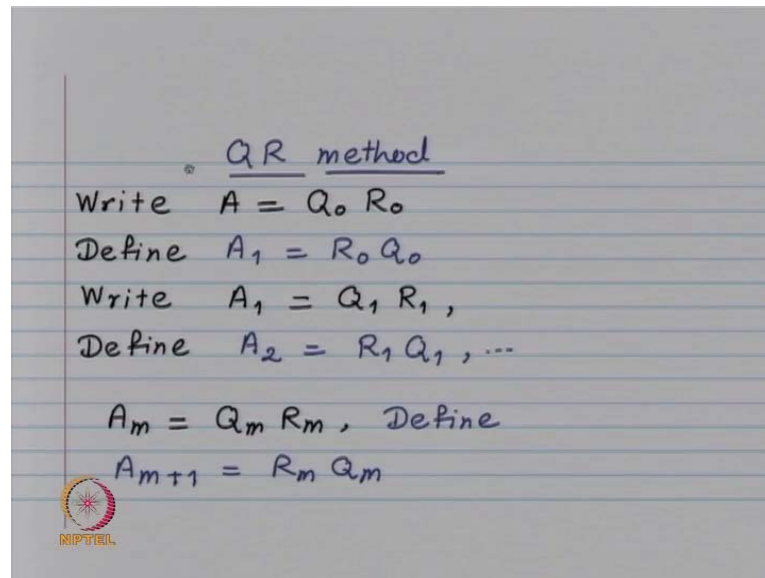 QR method
Write A = Q₀ R₀
Define A₁ = R₀ Q₀
Write A₁ = Q₁ R₁ ,
Define A₂ = R₁ Q₁ , ...
Aₘ = Qₘ Rₘ , Define
Aₘ₊₁ = Rₘ Qₘ
NPTEL